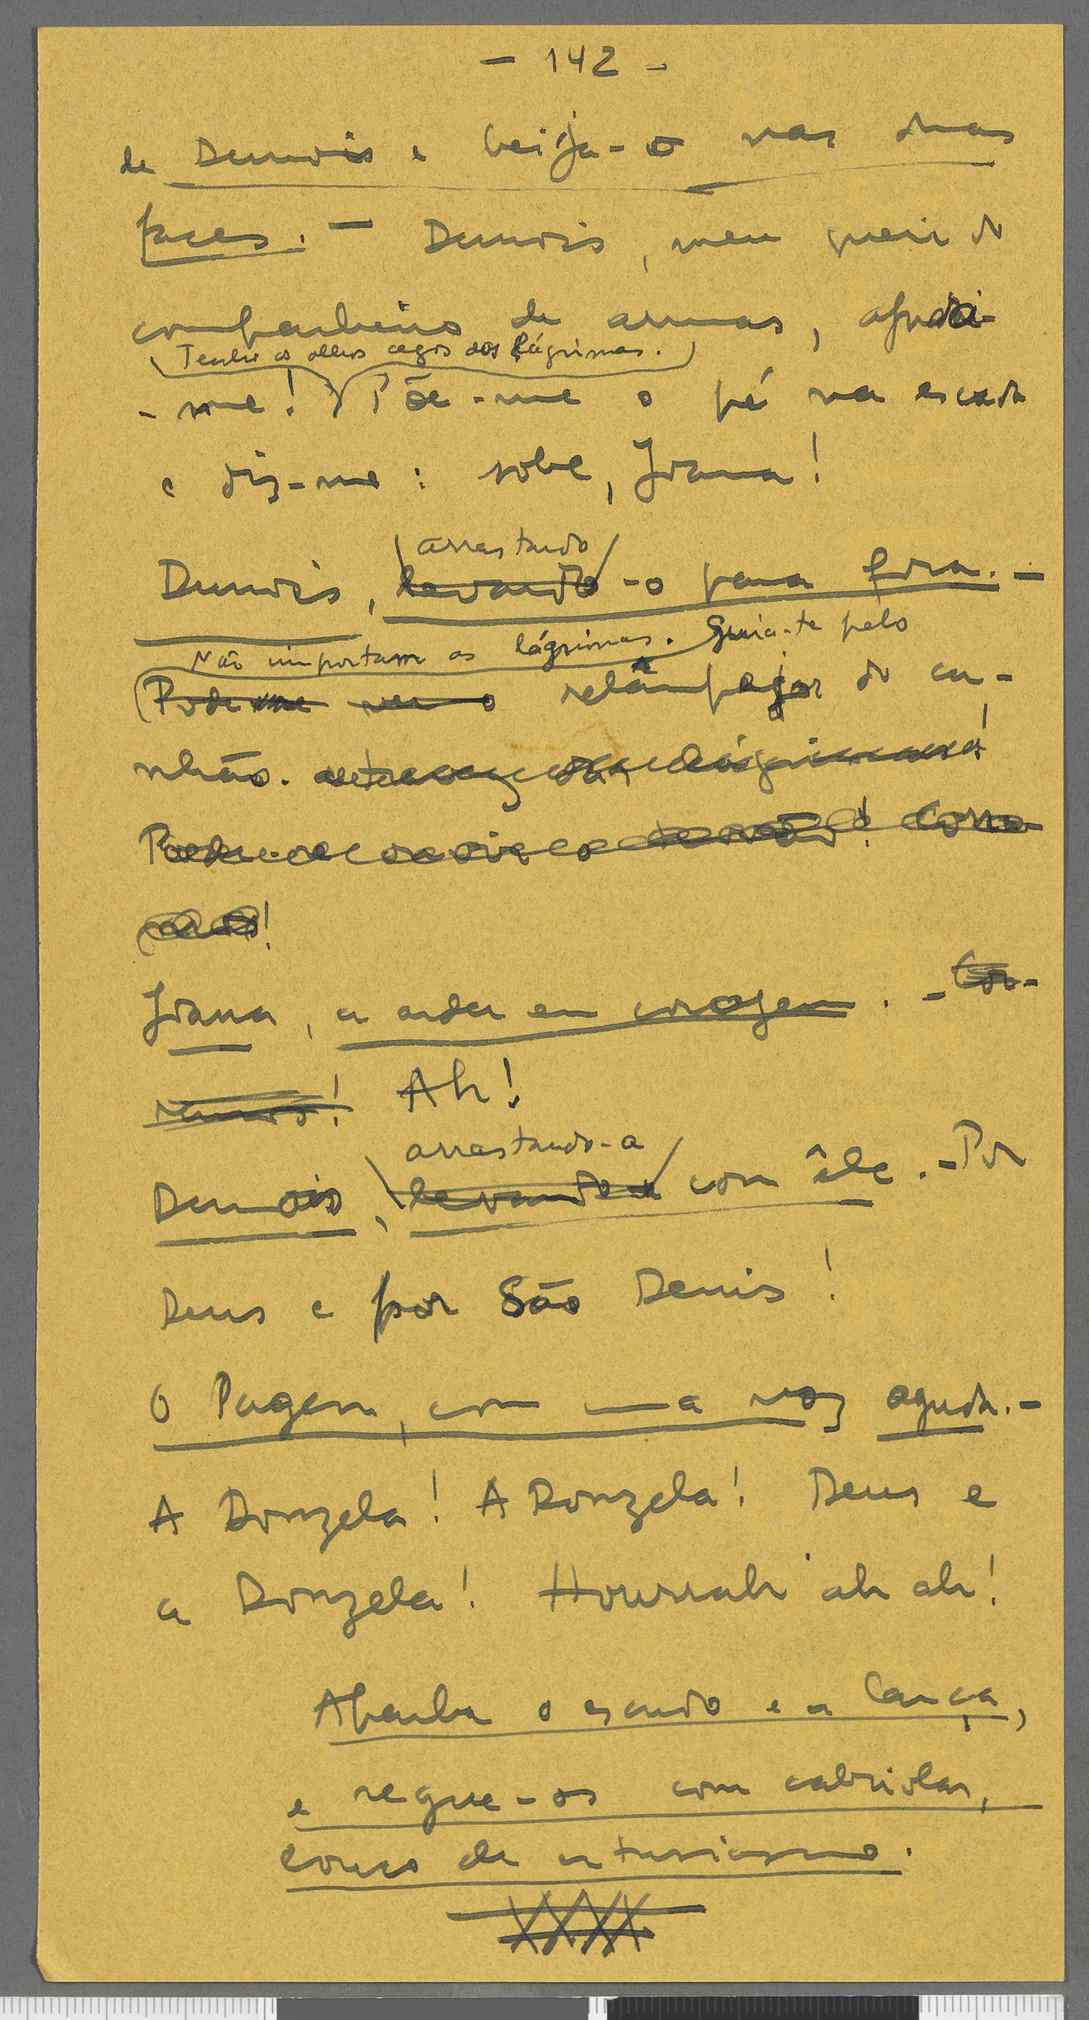 - 142 -
de Dunois e beija-o nas duas
faces. - Dunois, meu queri do
companheiro de armas, apoia-
Tenho os olhos cegos das lágrimas.
- me! Põe-me o pé na escada
e diz-me: sobe, Joana!
arrastando
Dunois, levando-o para fora. -
Não importam as lágrimas. Guia-te pelo
Pode me ver o relâmpago do ca-
nhão.
Joana, a arder em coragem. - Cor-
ramos! Ah!
arrastando-a
Dunois, levando-a com êle. - Por
Deus e por São Denis!
O Pagem, com uma voz aguda. -
A Donzela! A Donzela! Deus e
a Donzela! Hourrah ah ah!
Apanha o escudo e a lança,
e segue-os com cabriolas,
louco de entusiasmo.